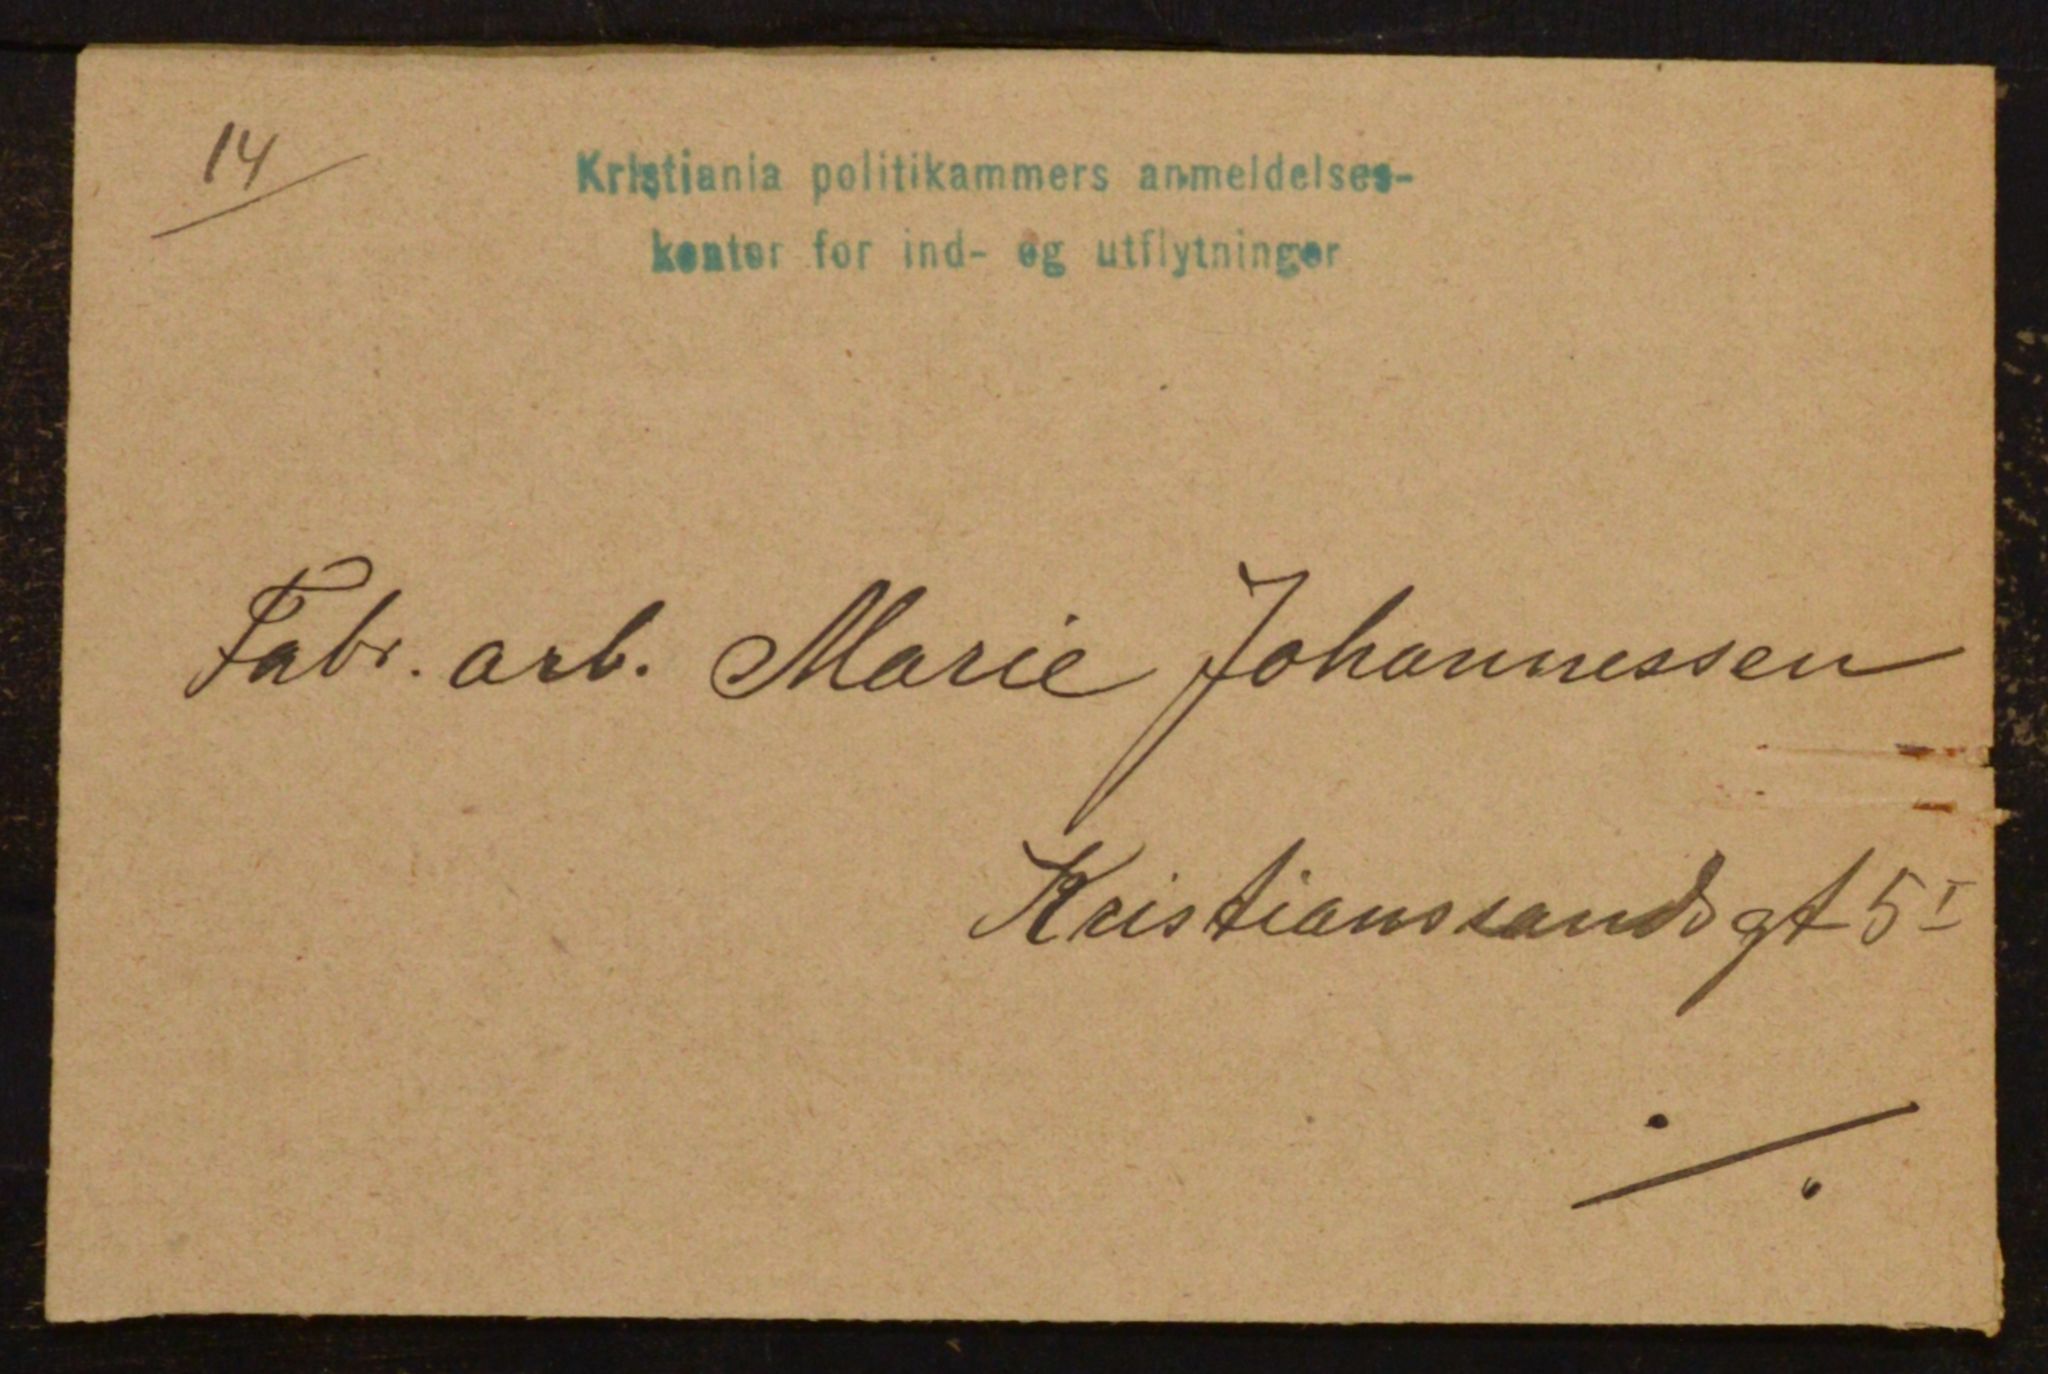 14
Kristiania politikammers anmeldelses-
kontor for ind- og utflytninger
Fabr. arb. Marie Johannessen
Kristianssandsgt 5 I